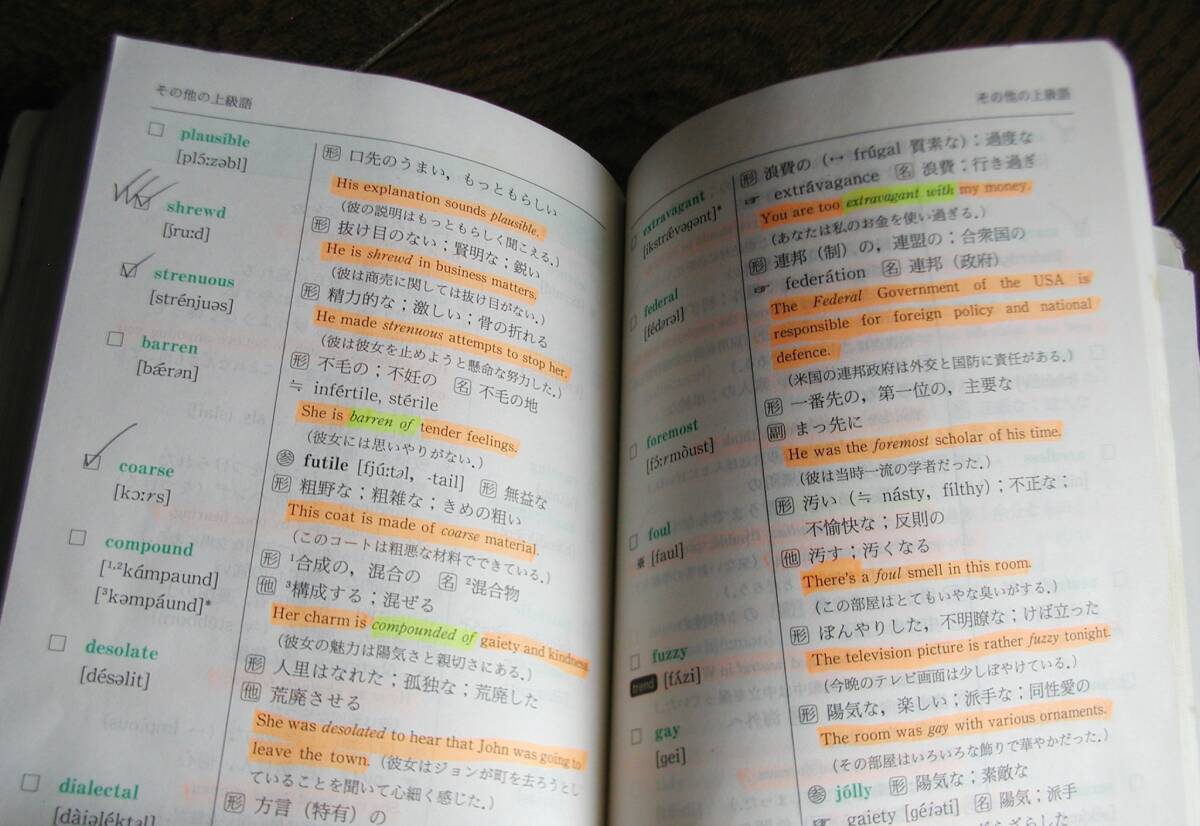 その他の上級語
plausible
[plɔ́:zəbl]
形 口先のうまい，もっともらしい
His explanation sounds plausible.
（彼の説明はもっともらしく聞こえる．）
shrewd
[ʃru:d]
形 抜け目のない；賢明な；鋭い
He is shrewd in business matters.
（彼は商売に関しては抜け目がない．）
strenuous
[strénjuəs]
形 精力的な；激しい；骨の折れる
He made strenuous attempts to stop her.
（彼は彼女を止めようと懸命な努力した．）
barren
[bǽrən]
形 不毛の；不妊の 名 不毛の地
≒ infértile, stérile
She is barren of tender feelings.
（彼女には思いやりがない．）
参 futile [fjú:təl, -tail] 形 無益な
coarse
[kɔ:rs]
形 粗野な；粗雑な；きめの粗い
This coat is made of coarse material.
（このコートは粗悪な材料でできている．）
compound
[¹,²kámpaund]
[³kəmpáund]*
形 ¹合成の，混合の 名 ²混合物
他 ³構成する；混ぜる
Her charm is compounded of gaiety and kindness.
（彼女の魅力は陽気さと親切さにある．）
desolate
[désəlit]
形 人里はなれた；孤独な；荒廃した
他 荒廃させる
She was desolated to hear that John was going to
leave the town.（彼女はジョンが町を去ろうとし
ていることを聞いて心細く感じた．）
dialectal
[dàiəléktəl]
形 方言（特有）の
その他の上級語
extravagant
[ikstrǽvəgənt]*
形 浪費の（↔ frúgal 質素な）；過度な
☞ extrávagance 名 浪費；行き過ぎ
You are too extravagant with my money.
（あなたは私のお金を使い過ぎる．）
federal
[fédərəl]
形 連邦（制）の，連盟の；合衆国の
☞ federátion 名 連邦（政府）
The Federal Government of the USA is
responsible for foreign policy and national
defence.
（米国の連邦政府は外交と国防に責任がある．）
foremost
[fɔ́:rmòust]
形 一番先の，第一位の，主要な
副 まっ先に
He was the foremost scholar of his time.
（彼は当時一流の学者だった．）
foul
[faul]
形 汚い（≒ násty, fílthy）；不正な；
不愉快な；反則の
他 汚す；汚くなる
There's a foul smell in this room.
（この部屋はとてもいやな臭いがする．）
fuzzy
trend [fʌ́zi]
形 ぼんやりした，不明瞭な；けば立った
The television picture is rather fuzzy tonight.
（今晩のテレビ画面は少しぼやけている．）
gay
[gei]
形 陽気な，楽しい；派手な；同性愛の
The room was gay with various ornaments.
（その部屋はいろいろな飾りで華やかだった．）
参 jólly 形 陽気な；素敵な
☞ gaiety [géiəti] 名 陽気；派手